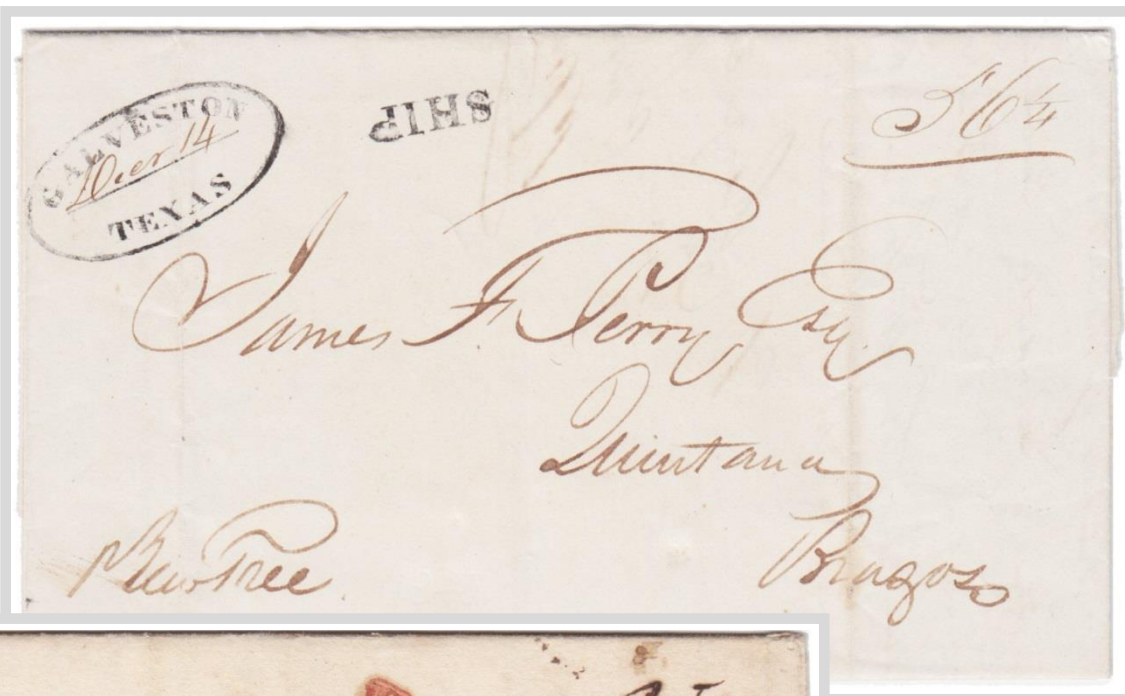 GALVESTON
Decr 14
TEXAS
SHIP
56¼
James F. Perry Esq
Quintana
Brazos